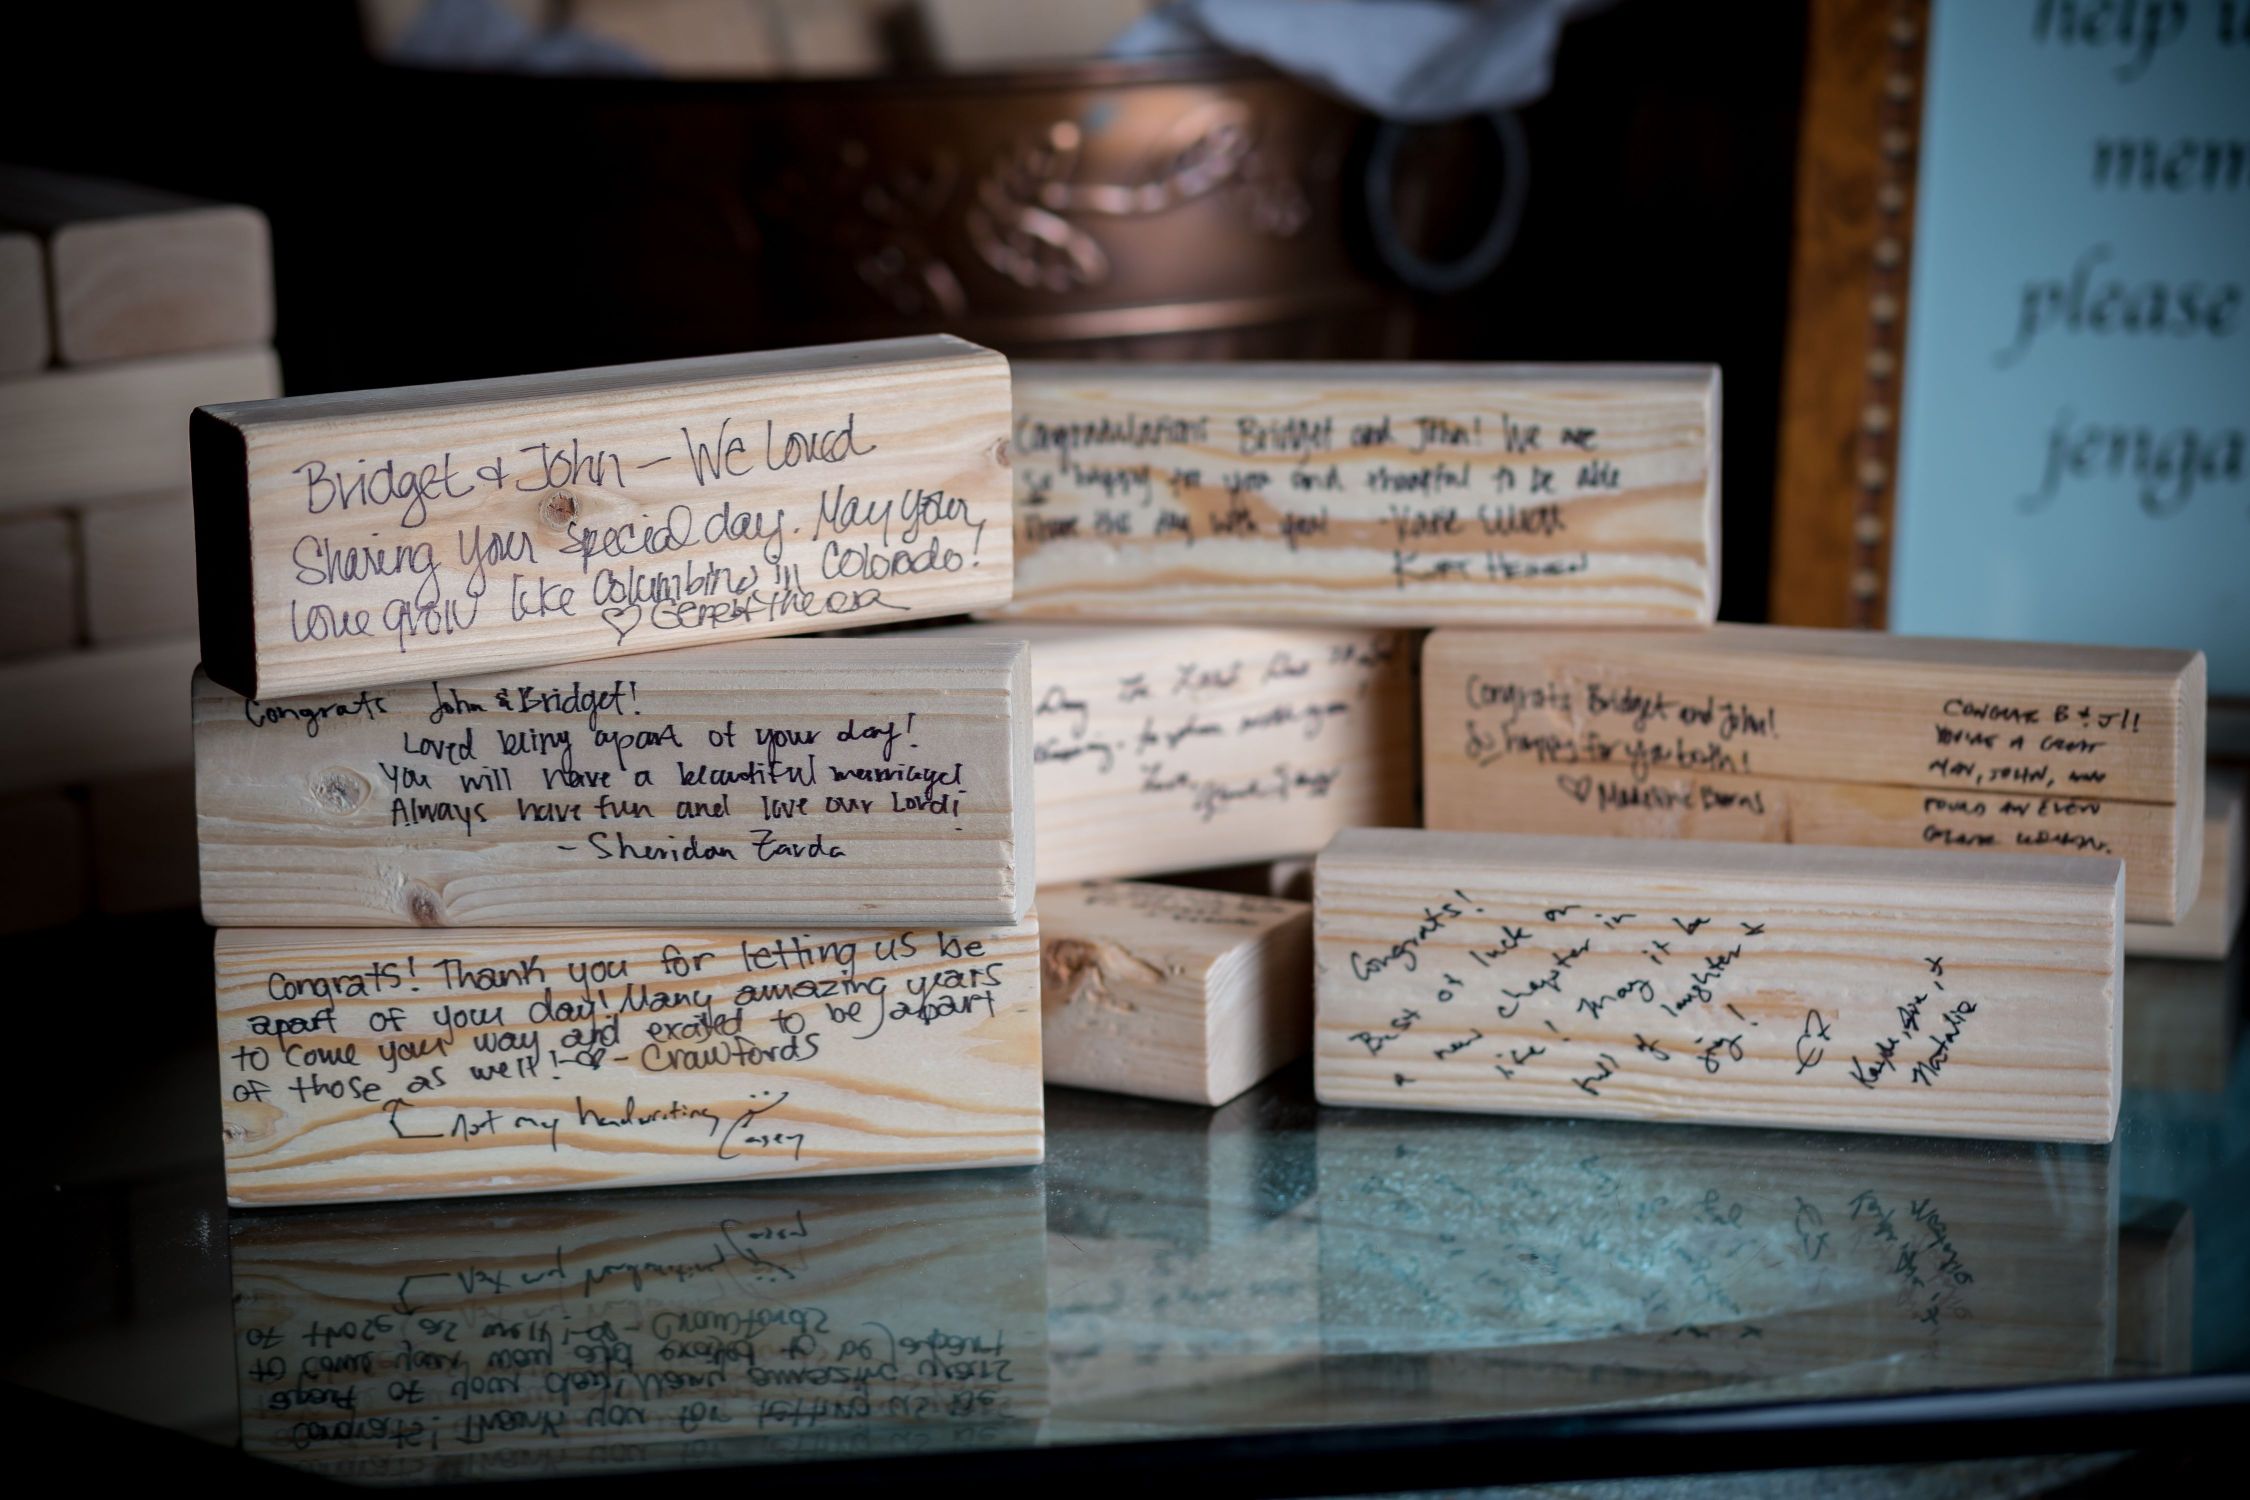 help
mem
please
jenga
Bridget & John – We Loved
Sharing your special day. May your
love grow like Columbines in Colorado!
♡
Congratulations Bridget and John! We are
so happy for you and thankful to be able
this day with you! - Katie
Congrats John & Bridget!
Loved being apart of your day!
You will have a beautiful marriage!
Always have fun and love our Lord!
- Sheridan Zarda
Day
Love,
Congrats Bridget and John!
So happy for you both!
♡ Madeline Burns
CONGRATS B & J!!
YOU'RE A GREAT
MAN, JOHN, AND
FOUND AN EVEN
WOMAN.
Congrats! Thank you for letting us be
apart of your day! Many amazing years
to come your way and excited to be apart
of those as well! - Crawfords
Not my handwriting
Casey
Congrats!
Best of luck on
a new chapter in
life! May it be
full of laughter +
joy!
Natalie